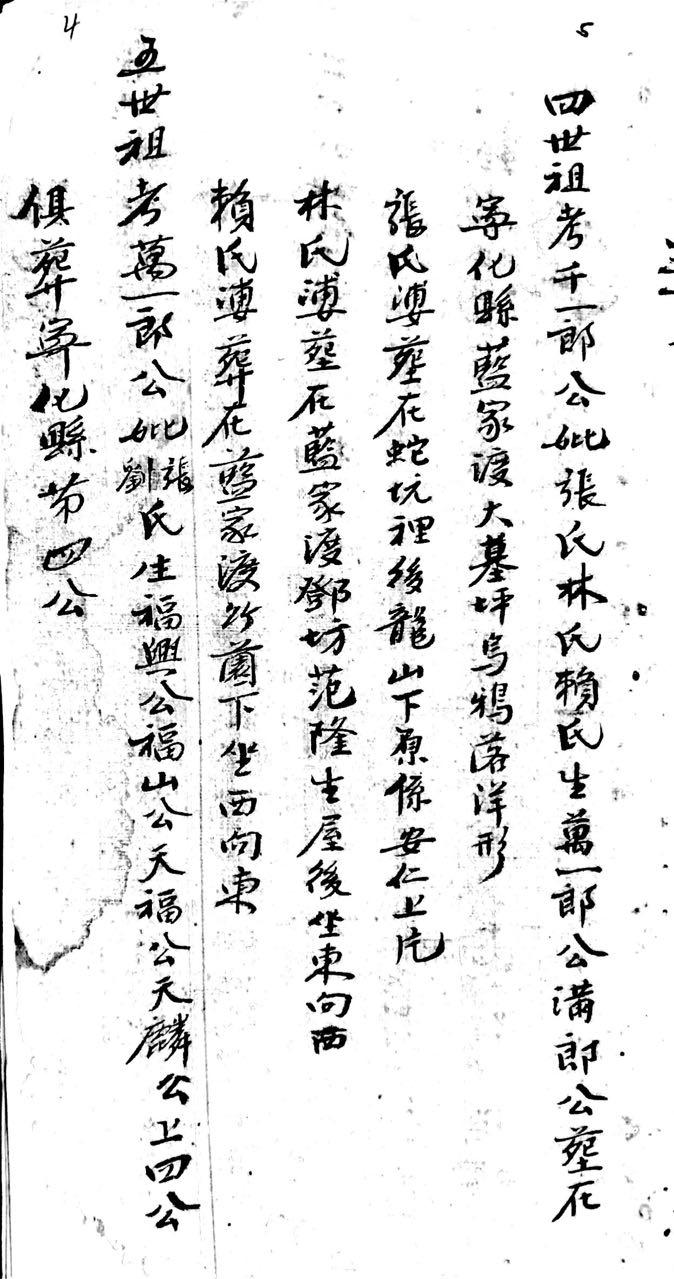 5
四世祖考千一郎公妣張氏林氏賴氏生萬一郎公滿郎公塟在
寧化縣藍家渡大墓坪烏鴉落洋形
張氏婆塟在蛇坑裡後龍山下原係安仁上片
林氏婆塟在藍家渡鄧坊范隆生屋後坐東向西
賴氏婆葬在藍家渡竹薗下坐西向東
4
五世祖考萬一郎公妣張劉氏生福興公福山公天福公天麟公上四公
俱葬寧化縣苐四公